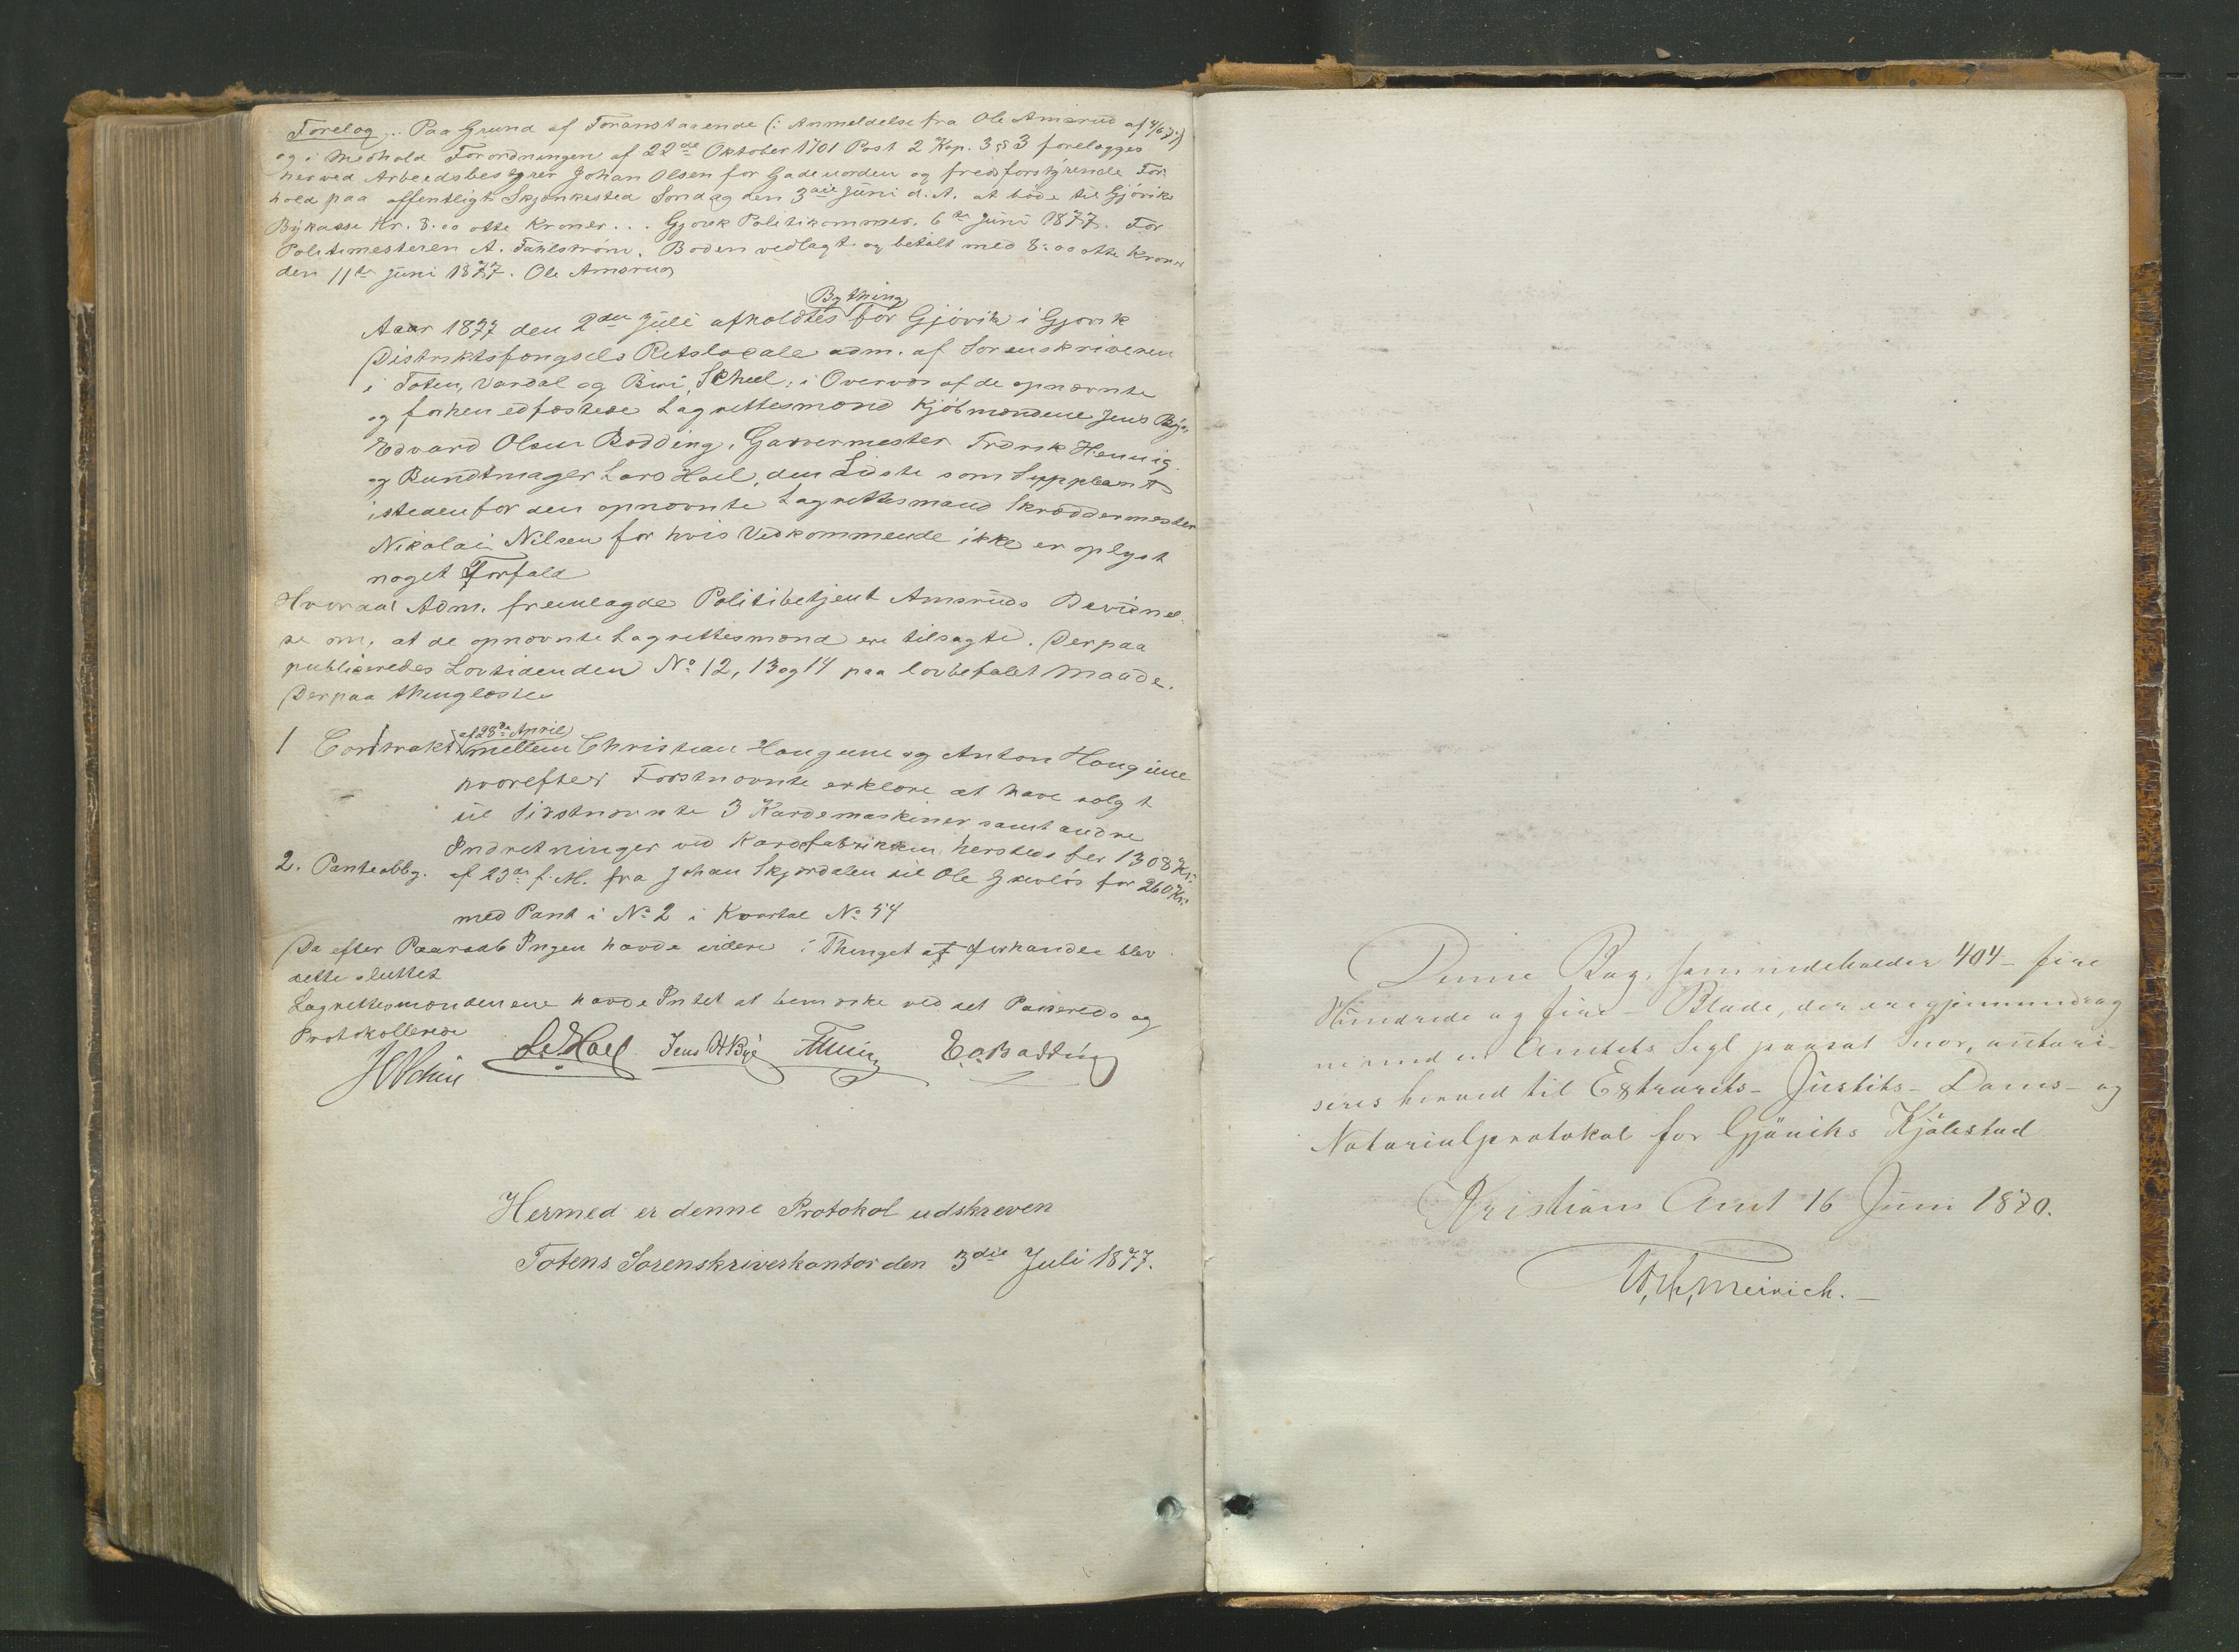 Forelæg. Paa Grund af Foranstaaende (: Anmeldelse fra Ole Amsrud af 4/6 77)
og i Medhold Forordningen af 22de Oktober 1701 Post 2 Kap. 3 § 3 forelægges
herved Arbeidsbestyrer Johan Olsen for Gadeuorden og fredsforstyrrende For
hold paa offentligt Skjænkested Søndag den 3die Juni d. A. at bøde til Gjøviks
Bykasse Kr. 8.00 otte Kroner... Gjøvik Politikammer. 6te Juni 1877. For
Politimesteren A. Fahlstrøm. Boden vedtaget og betalt med 8:00 otte Kroner
den 11te Juni 1877. Ole Amsrud
Bything
Aaar 1877 den 2den Juli afholdtes for Gjövik i Gjøvik
Distriktsfængsels Retslocale adm. af Sorenskriveren
i Toten, Vardal og Biri, Scheel, i Overvær af de opnævnte
og forhen edfæstede Lagrettesmænd Kjöbmændene Jens Bye,
Edvard Olsen Bødding, Garvermester Fredrik Hennig
og Bundtmager Lars Hoel, den Sidste som Suppleant
istedenfor den opnævnte Lagrettesmand Skræddermester
Nikolai Nilsen for hvis Vedkommende ikke er oplyst
noget Forfald
Hvoraa Adm. fremlagde Politibetjent Amsruds Bevidnel
se om, at de opnævnte Lagrettesmænd ere tilsagte. Derpaa
publiceredes Lovtidenden No 12, 13 og 14 paa lovbefalet Maade.
Derpaa thinglæstes
af 28de April
1 Contrakt mellem Christian Haugene og Anton Haugene
hvorefter Førstnævnte erklære at have solgt
til Sidstnævnte 3 Kardemaskiner samt andre
Indretninger ved Kardefabrikken hersteds for 1308 Kr.
2. Panteobbg. af 23de f. M. fra Johan Skjerdalen til Ole for 260 Kr.
med Pant i No 2 i Kvartal No 54
Da efter Paaraab Ingen havde videre i Thinget at forhandle blev
dette sluttet
Lagrettesmændenene havde Intet at bemærke ved det Passerede og
Protokollerede
L. Hoel Jens H Bye E. O. Bødding
Hermed er denne Protokol udskreven
Totens Sorenskriverkontor den 3die Juli 1877.
Denne Bog, som indeholder 404 - fire
Hundrede og fire - Blade, der ere gjennemdrag
ne med en Amtets Segl paasat Snor, autori-
seres herved til Extrarets- Justits- Doms- og
Notarialprotokol for Gjöviks Kjöbstad
Kristians Amt 16 Juni 1870.
W, Meinich.